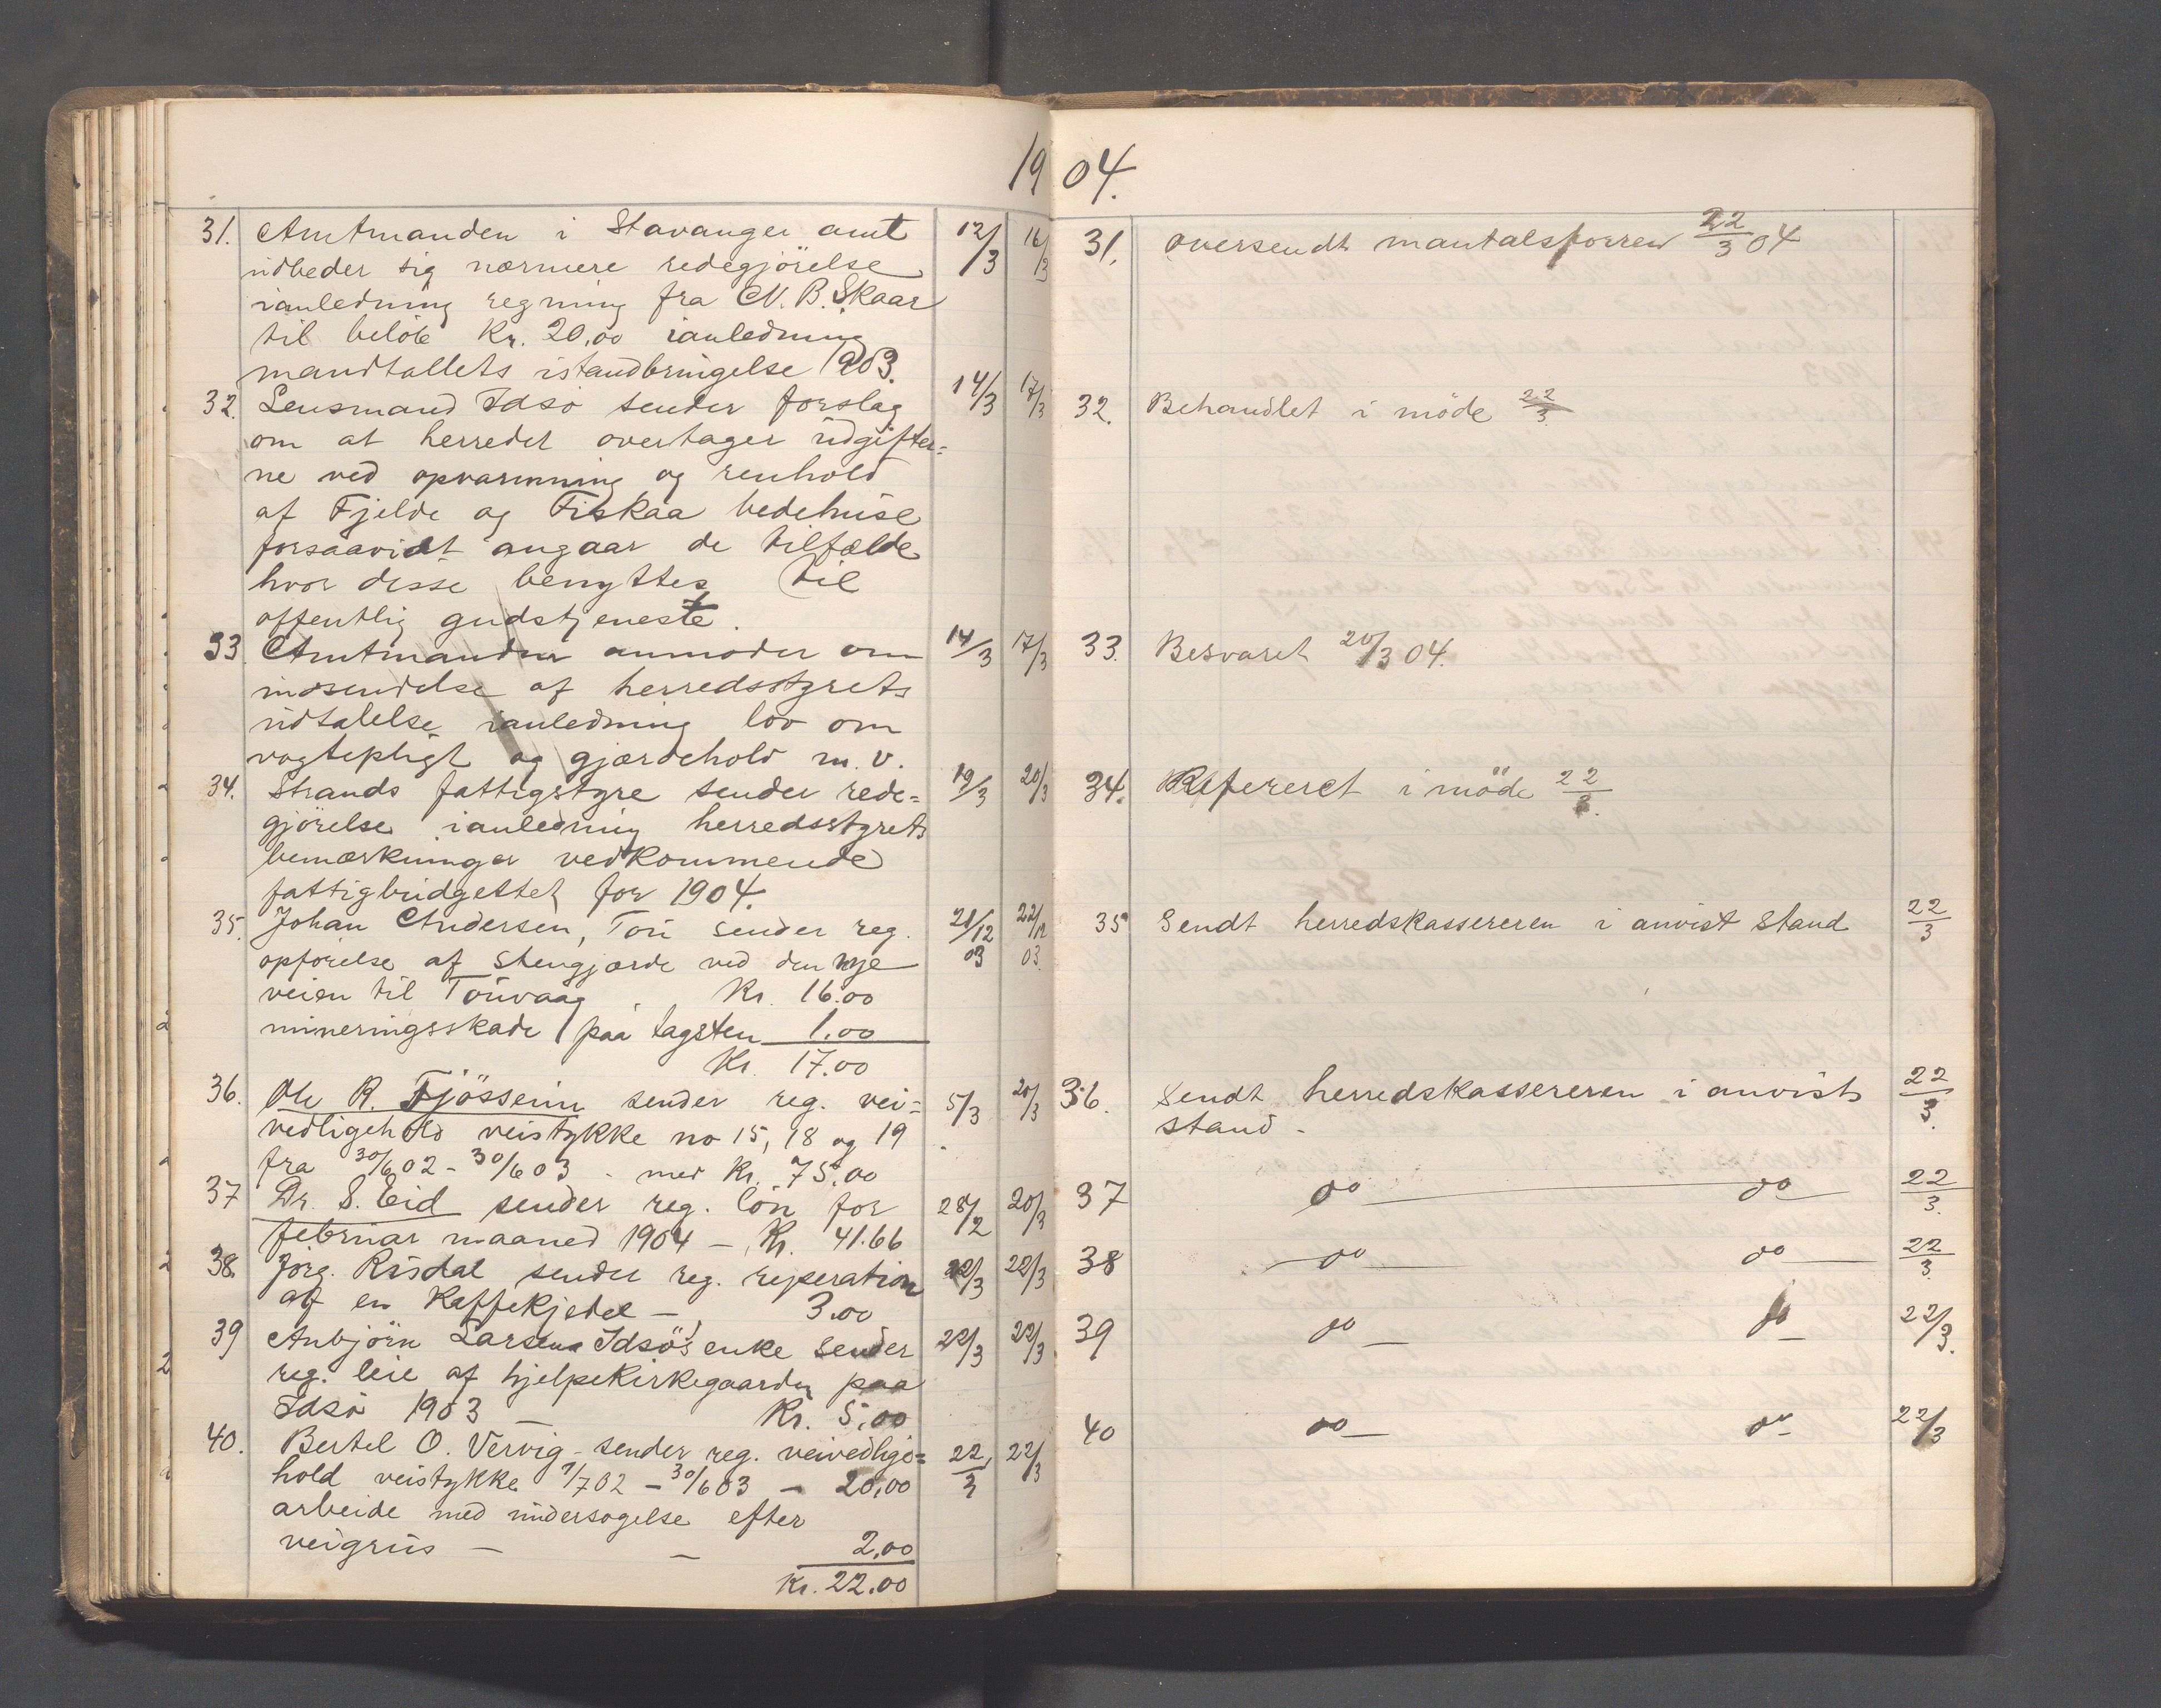 1904.
31. Amtmanden i Stavanger amt 12/3 16/3
udbeder sig nærmere redegjörelse
ianledning regning fra N. B. Skaar
til belöb Kr. 20,00 ianledning
mandtallets istandbringelse 1903.
32. Lensmand Idsö sender forslag 14/3 17/3
om at herredet overtager udgifter=
ne ved opvarmning og renhold
af Fjelde og Fiskaa bedehuse
forsaavidt angaar de tilfælde
hvor disse benyttes til
offentlig gudstjeneste.
33. Amtmanden anmoder om 14/3 17/3
indsendelse af herredsstyrets
udtalelse ianledning lov om
vogtepligt og gjærdehold m. v.
34. Strands fattigstyre sender rede= 19/3 20/3
gjörelse ianledning herredsstyrets
bemærkninger vedkommende
fattigbudgettet for 1904.
35. Johan Andersen, Tou sender reg. 21/12 03 22/12 03.
opförelse af stengjærde ved den nye
veien til Touvaag. Kr. 16.00
mineringsskade paa tagsten 1.00
Kr. 17.00
36. Ole R. Fjössein sender reg. vei= 5/3 20/3
vedligehold veistykke no 15, 18 og 19
fra 30/6 02 - 30/6 03 - med Kr. 75.00
37 Dr. S. Eid sender reg. lön for 28/2 20/3
februar maaned 1904 - Kr. 41.66
38. Jörg. Rusdal sender reg. reperation 22/3 22/3
af en Kaffekjedel - 3.00
39 Anbjörn Larsens Idsö's enke sender 22/3 22/3
reg. leie af hjelpekirkegaarden paa
Idsö 1903 - Kr. 5,00
40. Bertel O. Vervig - sender reg. veivedlige= 22/3 22/3
hold veistykke 1/7 02 - 30/6 03 - 20,00
arbeide med undersögelse efter
veigrus - - 2,00
Kr. 22.00
31. oversendt mantalsforren 22/3 04
32. Behandlet i möde 22/3
33. Besvaret 20/3 04.
34. Refereret i möde 22/3.
35 Sendt herredskassereren i anvist stand 22/3
36. Sendt herredskassereren i anvist 22/3.
stand -
37 do do 22/3.
38 do do 22/3.
39 do do 22/3.
40 do do 22/3